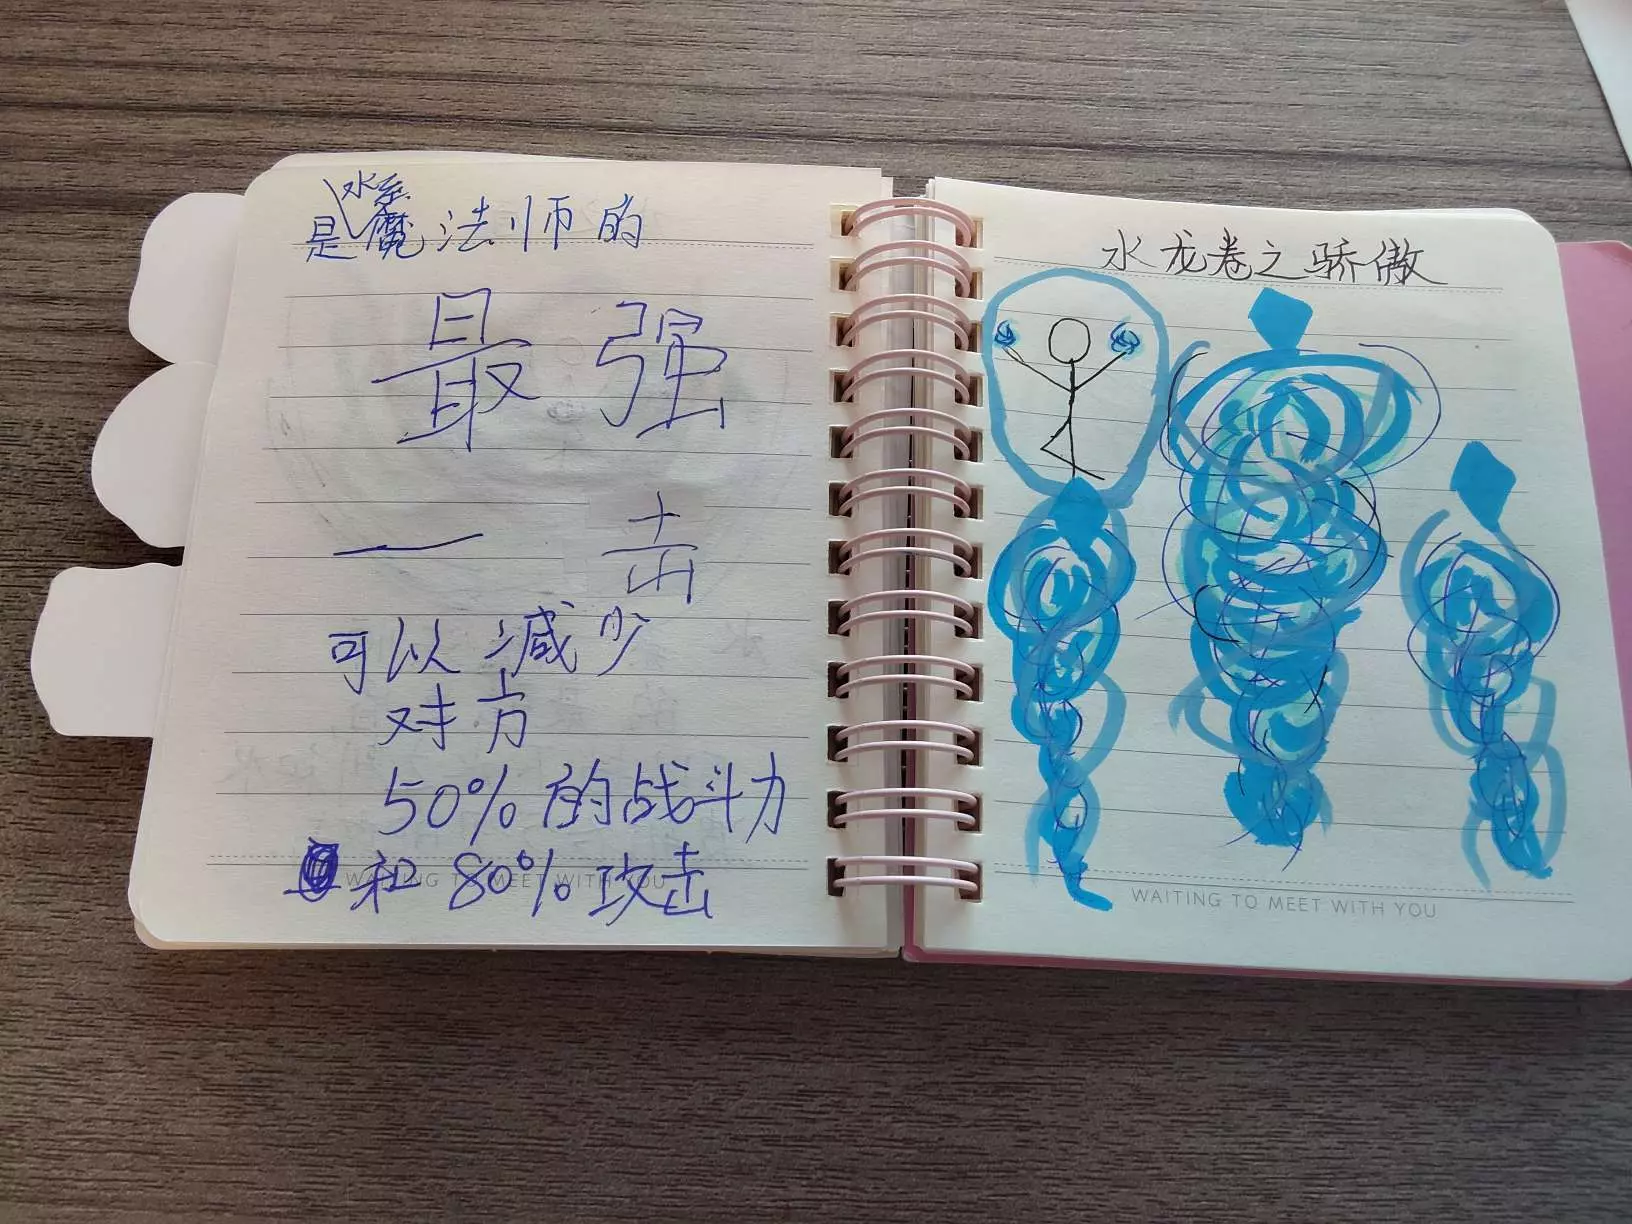 是水系魔法师的
最强
一击
可以减少
对方
50%的战斗力
和80%攻击
WAITING TO MEET WITH YOU
水龙卷之骄傲
WAITING TO MEET WITH YOU